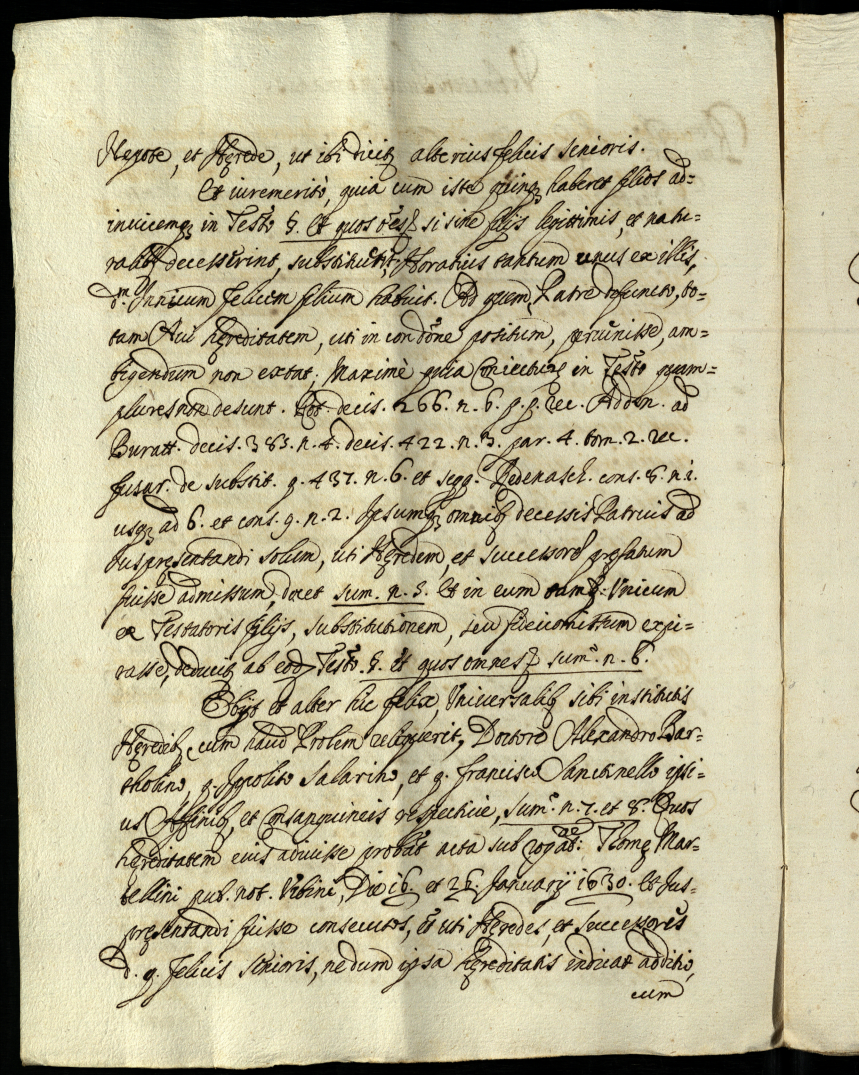 Nepote, et Hęrede, ut ibi dicitʒ alterius felicis senioris.
Et iuremeritò, quia cum iste quinqʒ haberet filios ad=
inuicemqʒ in Testo §. Et quos oẽs si sine filijs legittimis, et natu=
ralibʒ decesserint, substituerit, Horatius tantum unus ex illis,
d.m Innicum felicem filium habuit. Ad quem, Patre defuncto, to=
tam Aui hęreditatem, uti in condõne positum, peruenisse, am=
bigendum non extat; Maximè quia Coniecturę in Testo quam=
plures non desunt. Rot. decis. 266. n. 6. p. p. rec. Adden. ad
Buratt. decis. 383. n. 4. decis. 422. n. 3. par. 4. tom. 2. rec.
fusar. de substit. q. 437. n. 6. et seqq. Pedenasch. cons. 8. n. 1.
usqʒ ad 6. et cons. 9. n. 2. Ipsumqʒ omnibʒ decessis Patruis ad
Iuspresentandi solum, uti Hęredem, et successorẽ prefatum
fuisse admissum, docet sum. n. 5. Et in eum tamqʒ: Vnicum
ex Testatoris filijs, substitutionem, seu fideicomissum expi=
rasse, deducitʒ ab eodʒ Testo §. et quos omnes sum. n. 6.
Obijt et alter hic felix, Vniuersalibʒ sibi institutis
Hęredibʒ, cum haud Prolem reliquerit, Doctore Alexandro Bar=
tholino, q. Ippolito Salarino, et q. francisco Sanctinello ipsi=
us Affinibʒ, et Consanguineis respectiue, sum. n. 7. et 8. Quos
hęreditatem eius adiuisse probãt acta sub rog: Thomę Mar=
tellini pub. not. Vrbini, Die 16. et 26 Januarij 1630. Et Jus=
pręsentandi fuisse consecutos, et uti Hęredes, et successores
d. q. felicis senioris, nedum ipsa Hęreditatis indicat additio,
cum